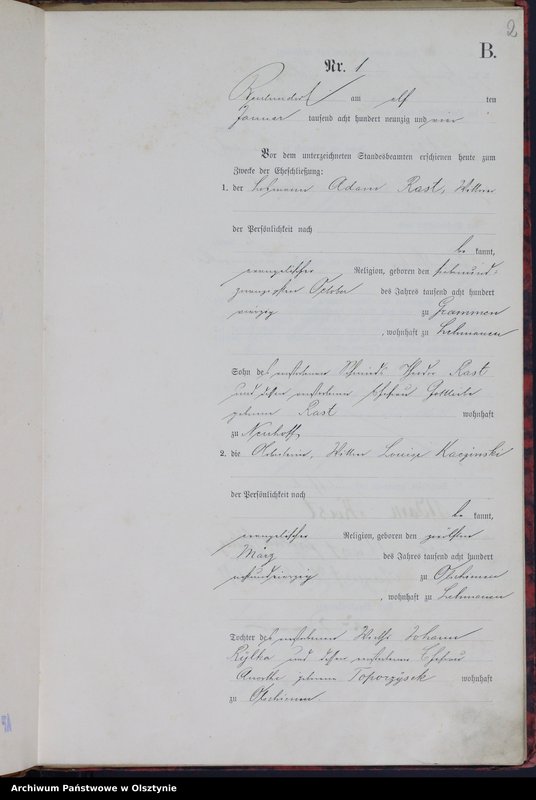 2
B.
Nr. 1
am elf ten
Januar tausend acht hundert neunzig und vier
Vor dem unterzeichneten Standesbeamten erschienen heute zum
Zwecke der Eheschließung:
1. der Losmann Adam Rast, Wittwer
der Persönlichkeit nach
be kannt,
evangelischer Religion, geboren den siebenund-
zwanzigsten October des Jahres tausend acht hundert
vierzig zu Grammen
, wohnhaft zu Lehmanen
Sohn des verstorbenen Schmieds Rast
und dessen verstorbener Ehefrau Gottliebe
geborene Rast wohnhaft
zu Neuhoff
2. die Wittwe Louise Kaczinski
der Persönlichkeit nach
be kannt,
evangelischer Religion, geboren den zwölften
März des Jahres tausend acht hundert
zu Olschienen
, wohnhaft zu Lehmanen
Tochter des verstorbenen Wirths Johann
Rylka und dessen verstorbene Ehefrau
geborene Toporzysek wohnhaft
zu Olschienen
Archiwum Państwowe w Olsztynie